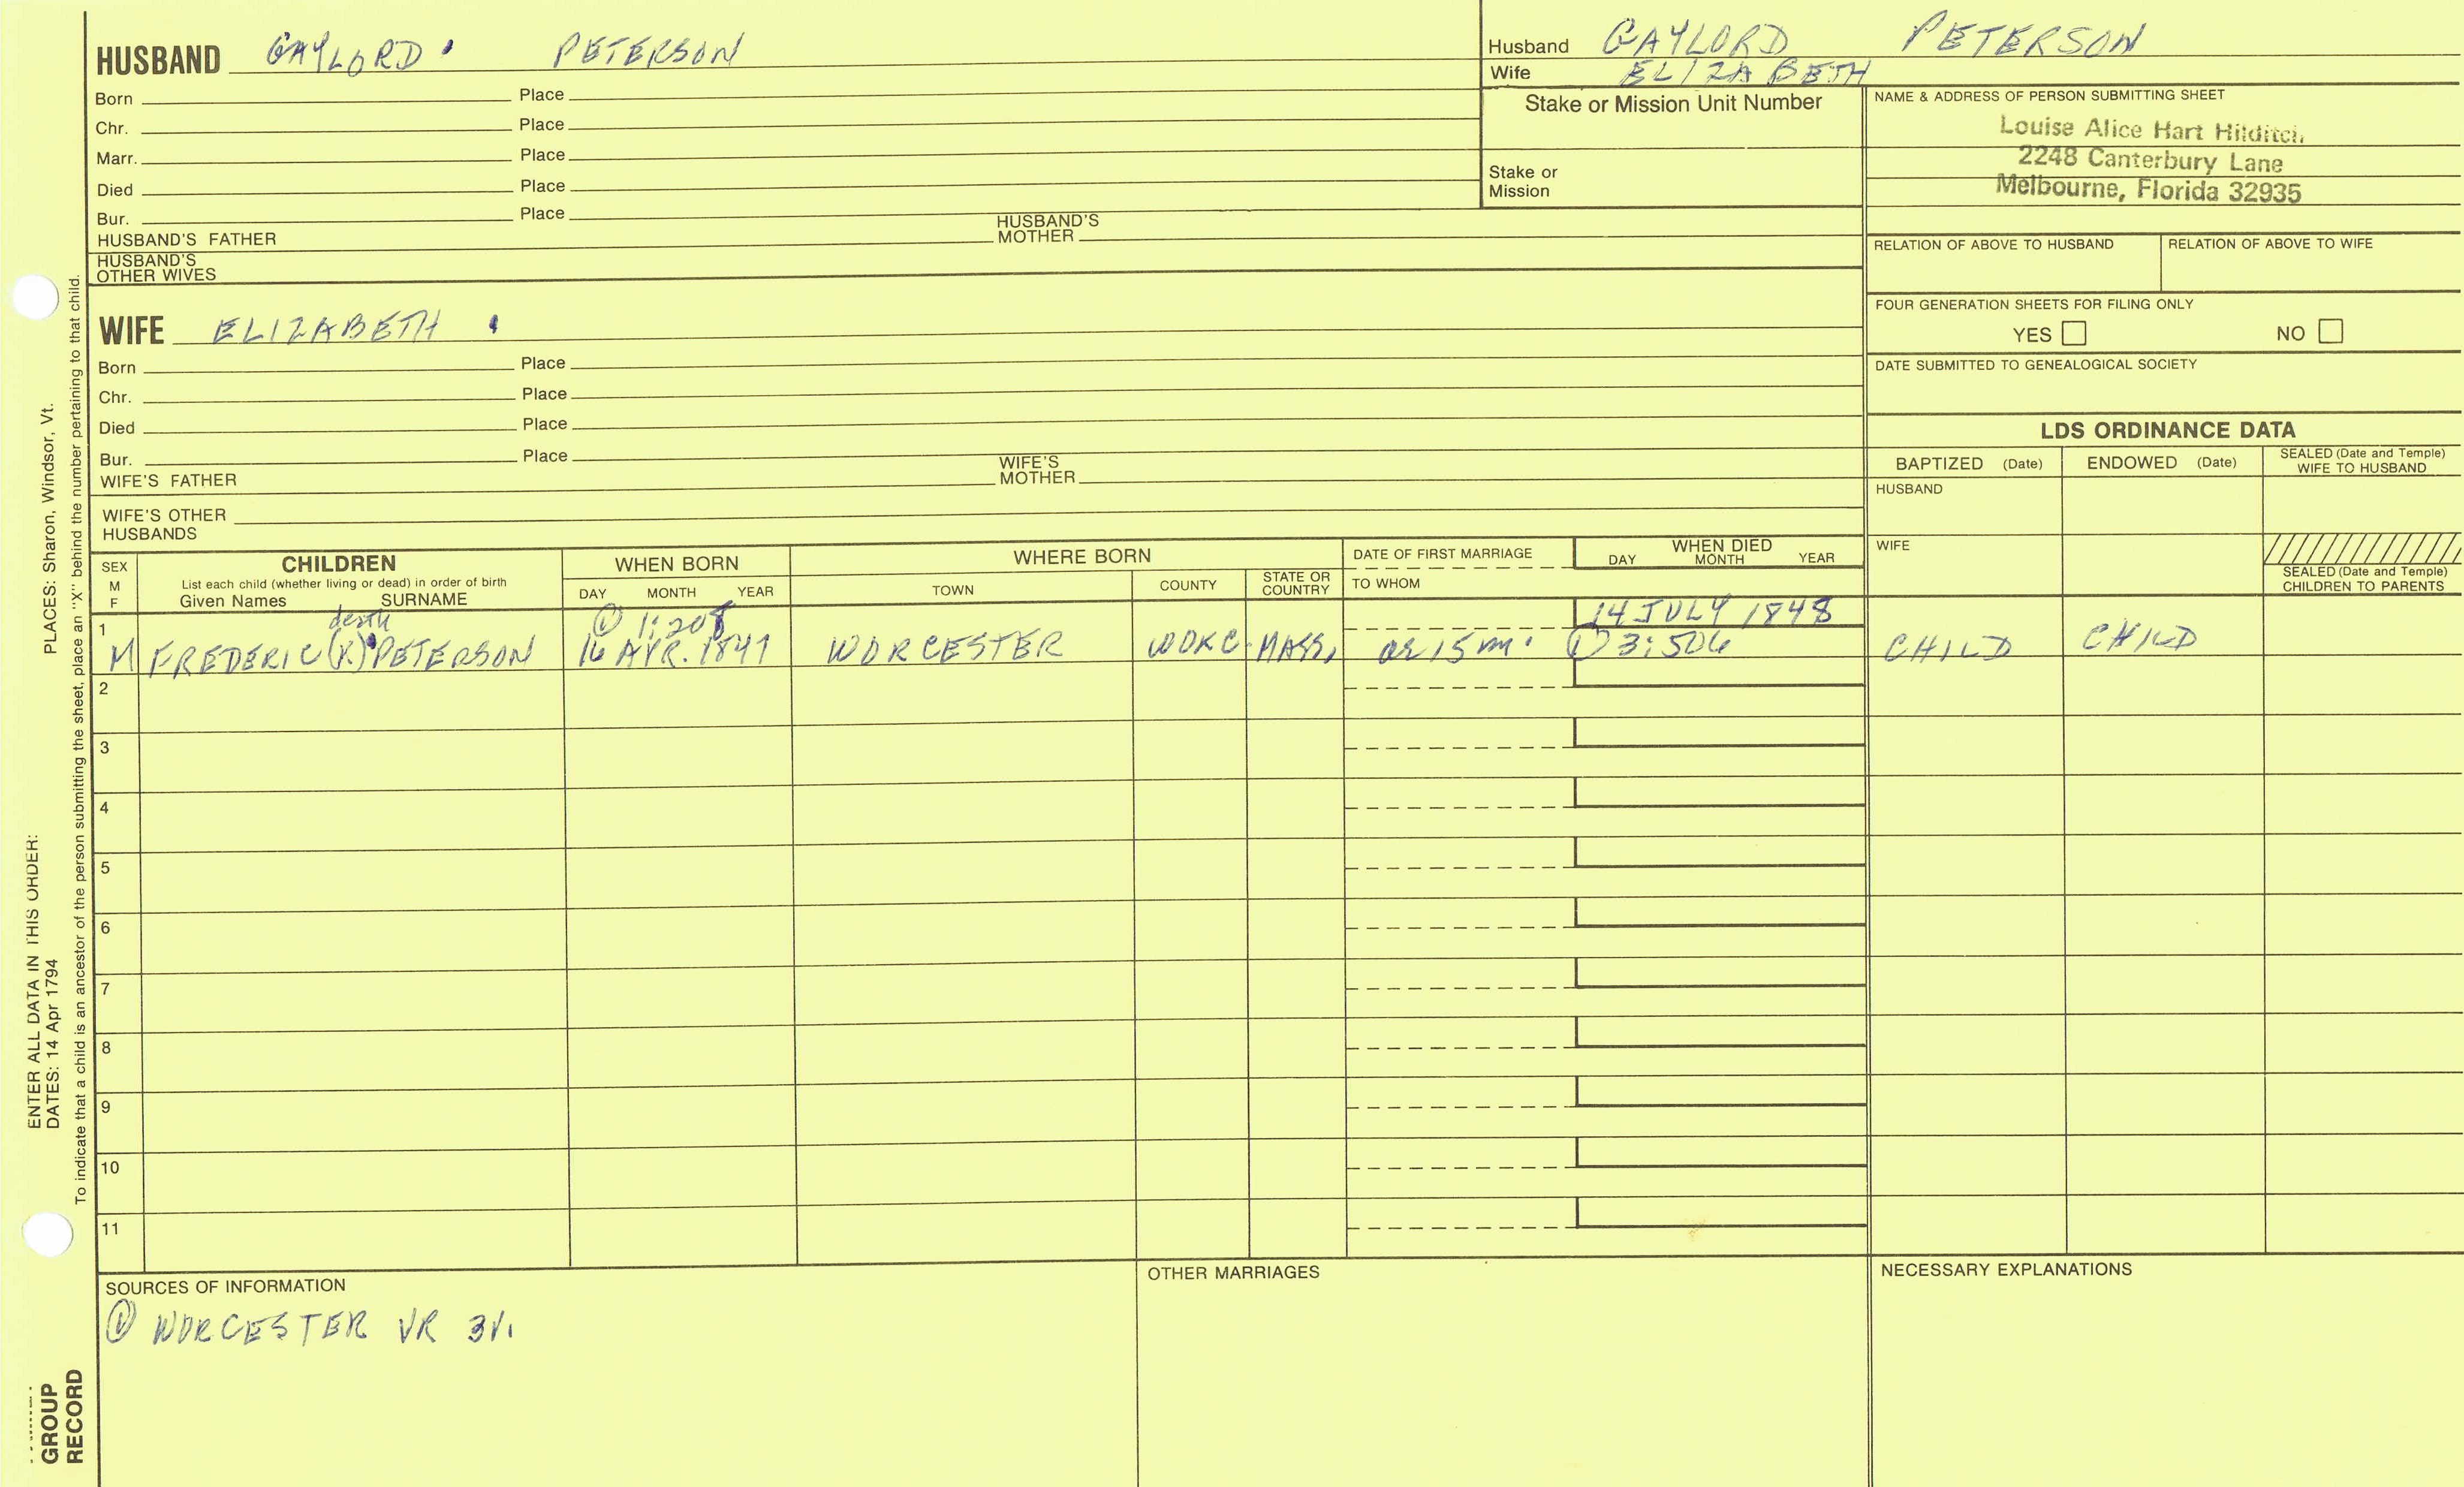 HUSBAND GAYLORD PETERSON
Born Place
Chr. Place
Marr. Place
Died Place
Bur. Place
HUSBAND'S FATHER HUSBAND'S MOTHER
HUSBAND'S OTHER WIVES
Husband GAYLORD PETERSON
Wife ELIZABETH
Stake or Mission Unit Number
Stake or Mission
NAME & ADDRESS OF PERSON SUBMITTING SHEET
Louise Alice Hart Hilditch
2248 Canterbury Lane
Melbourne, Florida 32935
RELATION OF ABOVE TO HUSBAND RELATION OF ABOVE TO WIFE
FOUR GENERATION SHEETS FOR FILING ONLY
YES NO
DATE SUBMITTED TO GENEALOGICAL SOCIETY
WIFE ELIZABETH
Born Place
Chr. Place
Died Place
Bur. Place
WIFE'S FATHER WIFE'S MOTHER
WIFE'S OTHER HUSBANDS
LDS ORDINANCE DATA
BAPTIZED (Date) ENDOWED (Date) SEALED (Date and Temple) WIFE TO HUSBAND
HUSBAND
WIFE
SEALED (Date and Temple) CHILDREN TO PARENTS
SEX M F
CHILDREN
List each child (whether living or dead) in order of birth
Given Names SURNAME
WHEN BORN
DAY MONTH YEAR
WHERE BORN
TOWN COUNTY STATE OR COUNTRY
DATE OF FIRST MARRIAGE
TO WHOM
WHEN DIED
DAY MONTH YEAR
death ① 1:208 14 JULY 1848
1 M FREDERIC(K) PETERSON 16 APR. 1847 WORCESTER WORC. MASS, ae 15 m. ① 3:506 CHILD CHILD
2
3
4
5
6
7
8
9
10
11
SOURCES OF INFORMATION
① WORCESTER VR 3V.
OTHER MARRIAGES
NECESSARY EXPLANATIONS
ENTER ALL DATA IN THIS ORDER:
DATES: 14 Apr 1794 PLACES: Sharon, Windsor, Vt.
To indicate that a child is an ancestor of the person submitting the sheet, place an "X" behind the number pertaining to that child.
GROUP
RECORD